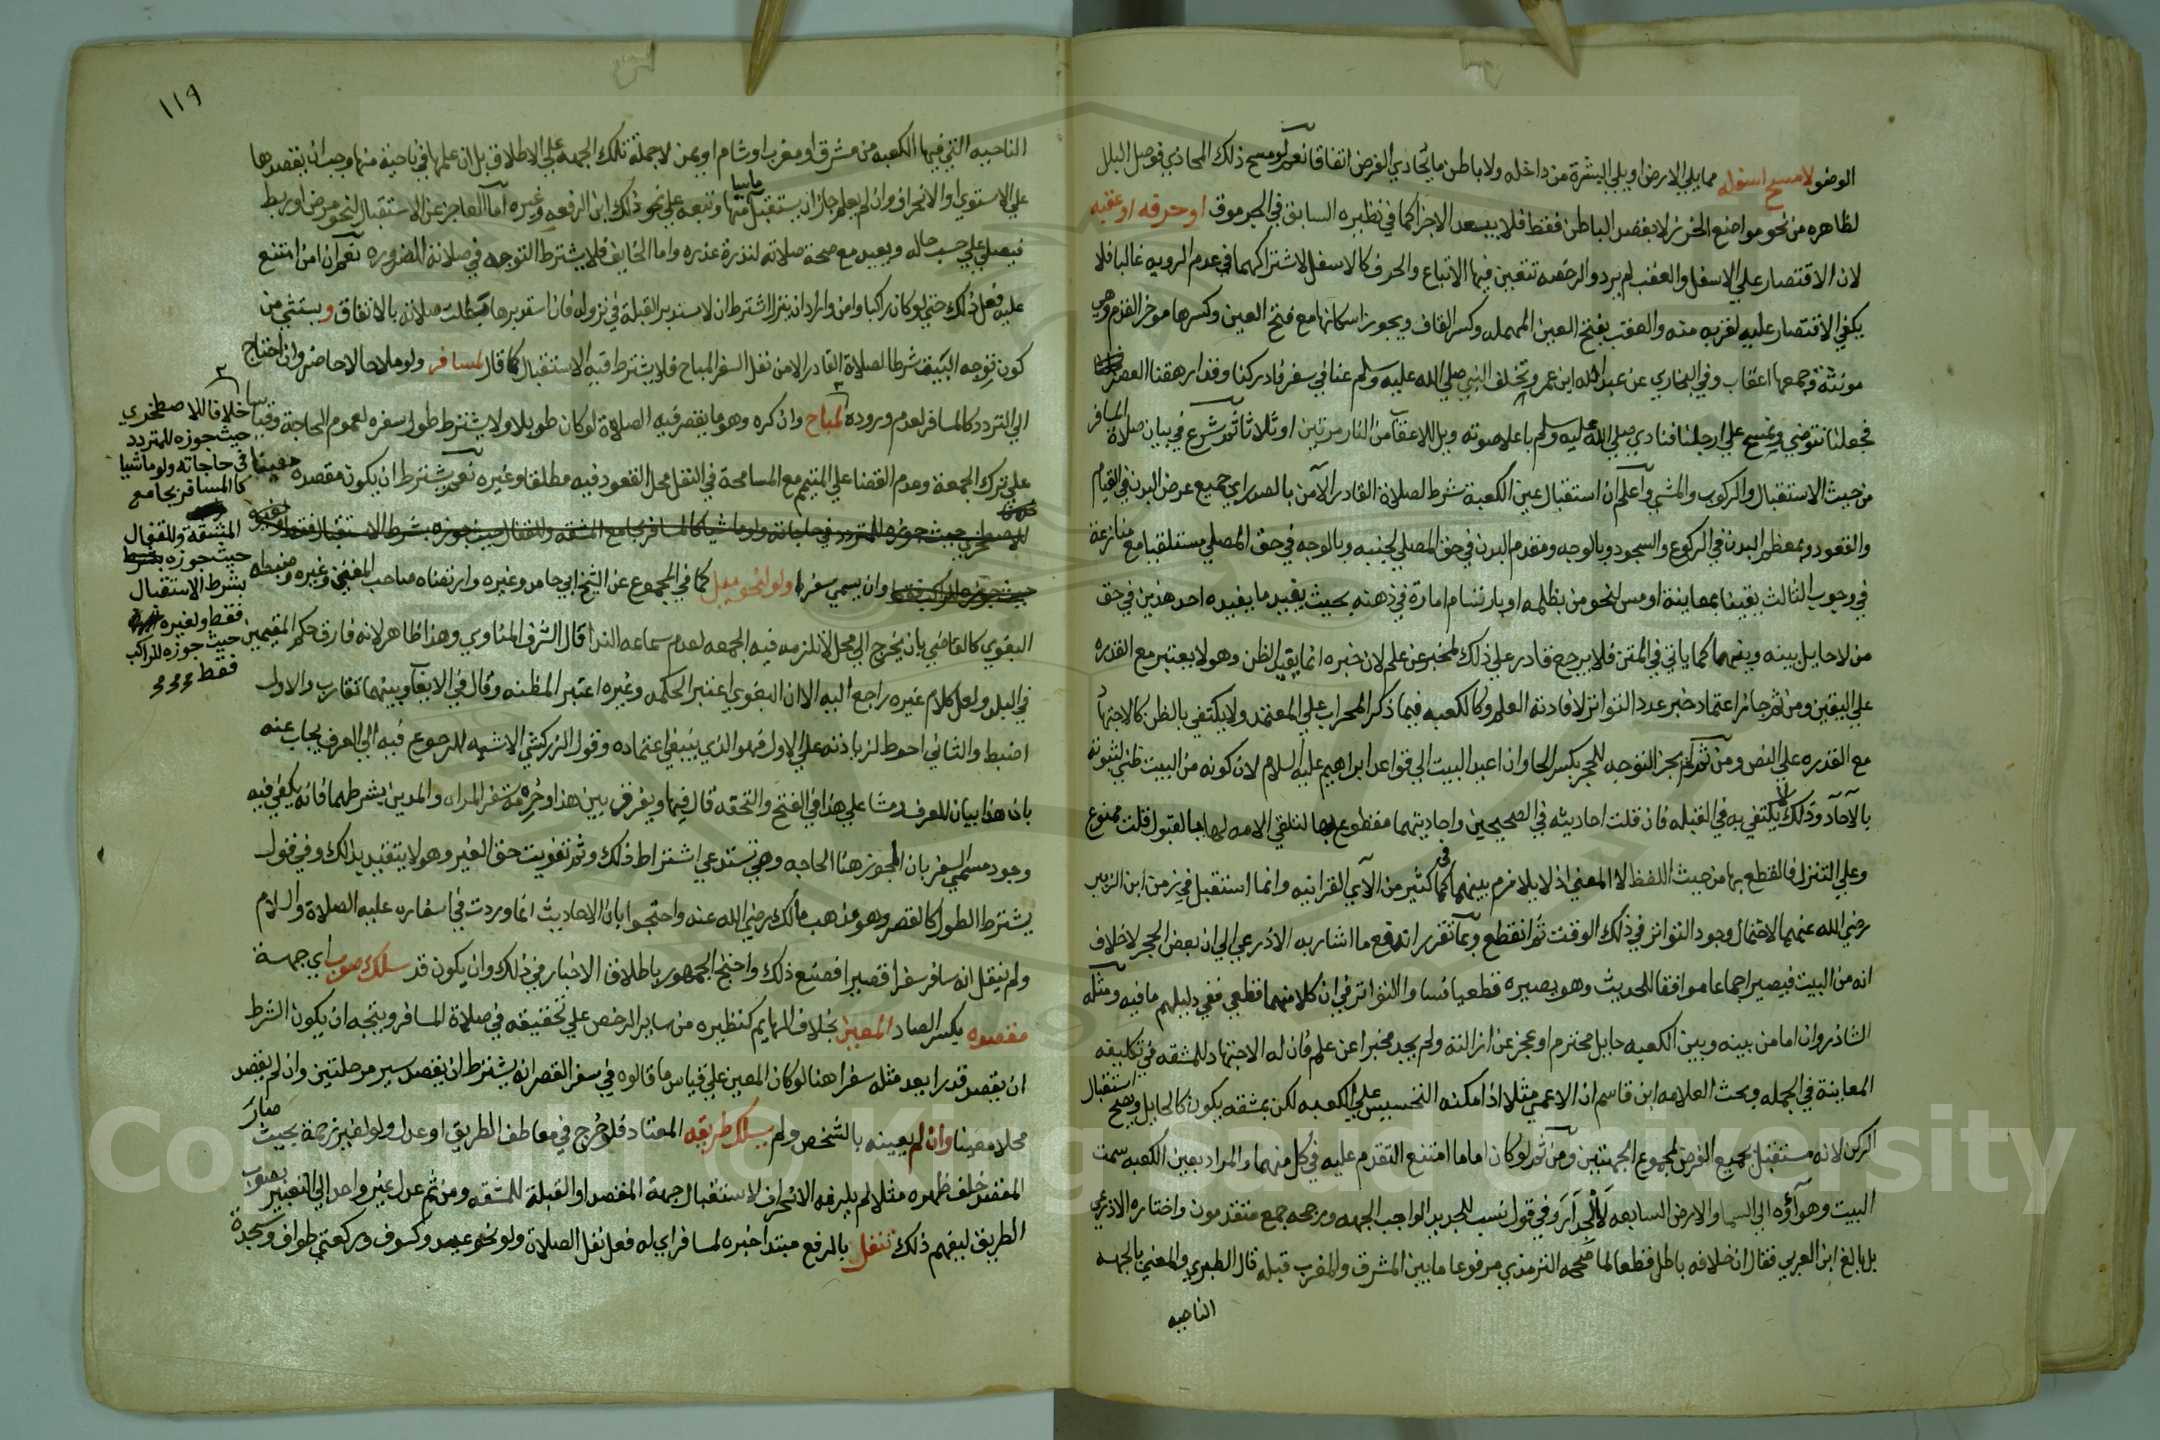 الوضو لا مسح اسفله مما يلي الارض او يلي البشرة من داخله ولا باطن ما يحاذي الفرض اتفاقا نعم لو مسح ذلك المحاذي فوصل البلل
لظاهره من نحو مواضع الخرز لا بقصد الباطن فقط فلا يبعد الاجزا كما في نظيره السابق في الجرموق او حرفه او عقبه
لان الاقتصار علي الاسفل والعقب لم يرد والرخصه تتعين فيها الاتباع والحرف كالاسفل لاشتراكهما في عدم الرويه غالبا فلا
يكفي الاقتصار عليه لقربه منه والعقب بفتح العين المهمله وكسر القاف ويجوز اسكانها مع فتح العين وكسرها موخر القدم وهي
مونثة وجمعها اعقاب وفي البخاري عن عبد الله ابن عمرو تخلف النبي صلي الله عليه وسلم عنا في سفر فادركنا وقد ارهقنا العصر
فجعلنا نتوضي ونمسح علي ارجلنا فنادي صلي الله عليه وسلم باعلا صوته ويل للاعقاب من النار مرتين او ثلاثا ثم شرع في بيان صلاة المسافر
من حيث الاستقبال والركوب والمشي واعلم ان استقبال عين الكعبة شرط لصلاة القادر الآمن بالصدر اي جميع عرض البدن في القيام
والقعود وبمعظم البدن في الركوع والسجود وبالوجه ومقدم البدن في حق المصلي لجنبه وبالوجه في حق المصلي مستلقيا مع منازعة
في وجوب الثالث يقينا بمعاينة او مس لنحو من بظلمه او بارتسام امارة في ذهنه بحيث يفيد ما يفيده احد هذين في حق
من لا حايل بينه وبينهما كما ياتي في المتن فلا يرجع قادر علي ذلك لمخبر عن علم لان خبره انما يفيد الظن وهو لا يعتبر مع القدره
علي اليقين ومن ثم جاز اعتماد خبر عدد التواتر لافادته العلم وكالكعبه فيما ذكر المحراب علي المعتمد ولا يكتفي بالظن كالاجتهاد
مع القدره علي النص ومن ثم لم يجز التوجه للحجر بكسر الحا وان اعيد البيت الي قواعد ابراهيم عليه السلام لان كونه من البيت ظني لثبوته
بالآحاد وذلك لا يكتفي به في القبله فان قلت احاديثه في الصحيحين واحاديثهما مقطوع بها لتلقي الامه لها بالقبول قلت ممنوع
وعلي التنزل فالقطع بها من حيث اللفظ لا المعني اذ لا تلازم بينهما كما في كثير من الآي القرانيه وانما استقبل في زمن ابن الزبير
رضي الله عنهما لاحتمال وجود التواتر في ذلك الوقت ثم انقطع وبما تقرر اندفع ما اشار به الاذرعي الي ان بعض الحجر لا خلاف
انه من البيت فيصير اجماعا موافقا للحديث وهو يصيره قطعيا فساوا التواتر في ان كلا منهما قطعي ففي دليلهم ما فيه ومثله
الشاذروان اما من بينه وبين الكعبه حايل محترم او عجز عن ازالته ولم يجد مخبرا عن علم فان له الاجتهاد للمشقه في تكليفه
المعاينة في الجمله وبحث العلامه ابن قاسم ان الاعمي مثلا اذا امكنه التحسيس علي الكعبه لكن بمشقه يكون كالحايل ويصح استقبال
الركن لانه مستقبل بجميع العرض لمجموع الجهتين ومن ثم لو كان اماما امتنع التقدم عليه في كل منهما والمراد بعين الكعبه سمت
البيت وهوآؤه الي السما والارض السابعه لا الجدار وفي قول نسب للجديد الواجب الجهه ورجحه جمع متقدمون واختاره الاذرعي
بل بالغ ابن العربي فقال ان خلافه باطل قطعا لما صححه الترمذي مرفوعا ما بين المشرق والمغرب قبله قال الطبري والمعني بالجهه
الناحيه
١١٩
الناحيه التي فيها الكعبه من مشرق او مغرب او شام او يمن لا جملة تلك الجهة علي الاطلاق بل ان علمها في ناحية منها وجب ان يقصدها
علي الاستوي او الانحراف وان لم يعلم جاز ان يستقبل منها ما شا وتبعه علي نحو ذلك ابن الرفعه وغيره اما العاجز عن الاستقبال لنحو مرض او ربط
فيصلي علي حسب حاله ويعيد مع صحة صلاته لندرة عذره واما الخايف فلا يشترط التوجه في صلاته للضروره نعم ان امن امتنع
عليه فعل ذلك حتي لو كان راكبا وامن واراد ان ينزل اشترط ان لا يستدبر القبلة في نزوله فان استدبرها بطلت صلاته بالاتفاق ويستثني من
كون توجه البيت شرطا لصلاة القادر الامن نفل السفر المباح فلا يشترط فيه الاستقبال كما قال لمسافر ولو ملاحا لا حاضر وان احتاج
الي التردد كالمسافر لعدم وروده لمباح وان كره وهو ما يقصر فيه الصلاة لو كان طويلا ولا يشترط طول سفره لعموم الحاجة وقياسا
علي ترك الجمعة وعدم القضا علي المتيمم مع المسامحة في النفل محل القعود فيه مطلقا وغيره نعم يشترط ان يكون مقصده معينا
للاصطخري حيث جوزه للمتردد في حاجاته ولو ماشيا كالمسافر بجامع المشقه وللقفال حيث جوزه بشرط الاستقبال فقط ولغيره
حيث جوزه للراكب فقط وان يسمي سفرا ولو لنحو ميل كما في المجموع عن الشيخ ابي حامد وغيره وارتضاه صاحب المغني وغيره وضبطه
البغوي كالقاضي بان يخرج الي محل لا تلزمه فيه الجمعه لعدم سماعه الندا قال الشرف المناوي وهذا ظاهر لانه فارق حكم المقيمين
في البلد ولعل كلام غيره راجع اليه الا ان البغوي اعتبر الحكمه وغيره اعتبر المظنه وقال في الايعاب وبينهما تقارب والاول
اضبط والثاني احوط لزياذته علي الاول فهو الذي ينبغي اعتماده وقول الزركشي الاشبه الرجوع فيه الي العرف يجاب عنه
بان هذا بيان للعرف ومشا علي هذا في الفتح والتحفه قال فيها ويفرق بين هذا وحرمة سفر المراه والمدين بشرطهما فانه يكفي فيه
وجود مسمي السفر بان المجوز هنا الحاجه وهي تستدعي اشتراط ذلك وثم تفويت حق الغير وهو لا يتقيد بذلك وفي قول
يشترط الطول كالقصر وهو مذهب مالك رضي الله عنه واحتجوا بان الاحاديث انما وردت في اسفاره عليه الصلاة والسلام
ولم ينقل انه سافر سفرا قصيرا فصنع ذلك واحتج الجمهور باطلاق الاخبار في ذلك وان يكون قد سلك صوب اي جهة
مقصده بكسر الصاد المعين بخلاف الهايم كنظيره من ساير الرخص علي تحقيقه في صلاة المسافر ويتجه ان يكون الشرط
ان يقصد قدرا يعد مثله سفرا هنا لو كان المعين علي قياس ما قالوه في سفر القصر انه يشترط ان يقصد سير مرحلتين وان لم يقصد
محلا معينا وان لم يعينه بالشخص ولم يسلك طريقه المعتاد فلو خرج في معاطف الطريق او عدل ولو لغير زحمة بحيث صار
المقصد خلف ظهره مثلا لم يلزمه الانحراف لاستقبال جهة المقصد او القبلة للمشقه ومن ثم عدل غير واحد الي التعبير بصوب
الطريق ليفهم ذلك تنفل بالرفع مبتدا خبره لمسافر اي له فعل نفل الصلاة ولو نحو عيد وكسوف وركعتي طواف وسجدة
خلافا للاصطخري
حيث جوزه للمتردد
في حاجاته ولو ماشيا
كالمسافر بجامع
المشقة وللقفال
حيث جوزه
بشرط الاستقبال
فقط ولغيره
حيث جوزه للراكب
فقط
Copyright © King Saud University